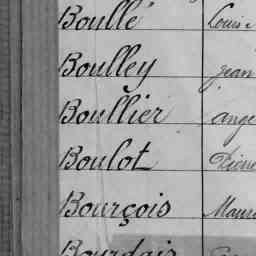 Boullé Louis
Boulley Jean
Boullier Ange
Boulot Pierre
Bourçois
Bourdais